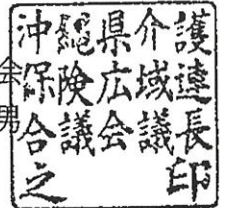 沖縄県介護
保険広域連
合議会議長
之印